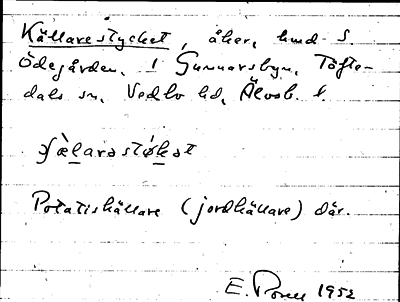 Källarestycket, åker, hmd. S.
Ödegården, 1 Gunnarsbyn, Töfte-
dals sn, Vedbo hd, Älvsb. l.
Potatiskällare (jordkällare) där.
E. 1952